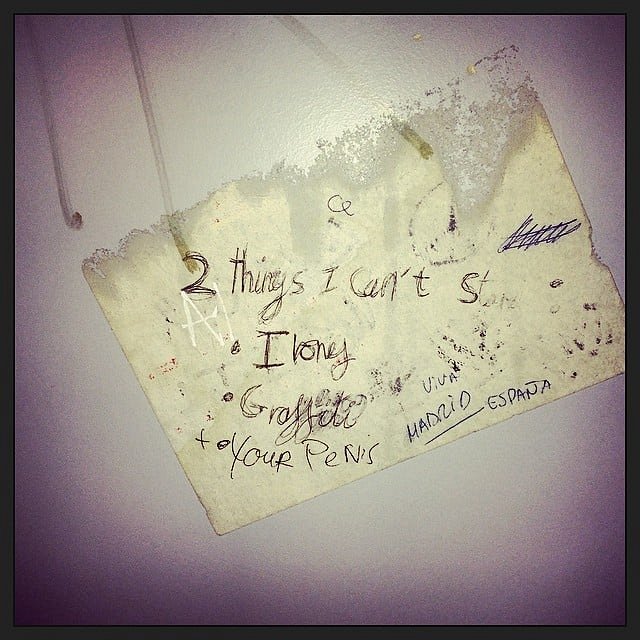 2 things I Can't
• Irony
• Graffiti
+ • YOUR PENIS
VIVA
MADRID ESPAÑA